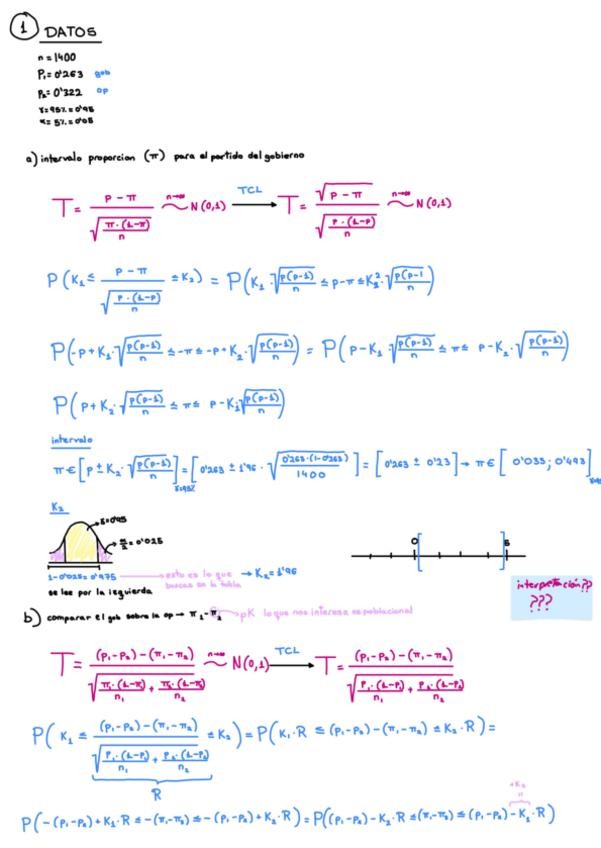 1 DATOS
n = 1400
P₁ = 0'263 gob
P₂ = 0'322 op
γ = 95% = 0'95
α = 5% = 0'05
a) intervalo proporcion (π) para el partido del gobierno
T = (p - π) / √(π·(1-π)/n) ~ n→∞ N(0,1) TCL → T = √(p - π) / √(p·(1-p)/n) ~ n→∞ N(0,1)
P(K₁ ≤ (p - π) / √(p·(1-p)/n) ≤ K₂) = P(K₁·√(p(p-1)/n) ≤ p-π ≤ K₂²·√(p(p-1/n)
P(-p+K₁·√(p(p-1)/n) ≤ -π ≤ -p+K₂·√(p(p-1)/n)) = P(p-K₁·√(p(p-1)/n) ≤ π ≤ p-K₂·√(p(p-1)/n))
P(p+K₂·√(p(p-1)/n) ≤ π ≤ p-K₁√(p(p-1)/n))
intervalo
π ∈ [p ± K₂·√(p(p-1)/n)] γ=95% = [0'263 ± 1'96·√(0'263·(1-0'263)/1400)] = [0'263 ± 0'23] → π ∈ [0'033; 0'493]
K₂
γ=0'95
α/2 = 0'025
1-0'025 = 0'975 → esto es lo que buscas en la tabla → K₂ = 1'96
se lee por la izquierda
0 5
interpretación??
???
b) comparar el gob sobre la op → π₁-π₂ → pK lo que nos interesa es poblacional
T = ((p₁-p₂)-(π₁-π₂)) / √(π₁·(1-π₁)/n₁ + π₂·(1-π₂)/n₂) ~ n→∞ N(0,1) TCL → T = ((p₁-p₂)-(π₁-π₂)) / √(p₁·(1-p₁)/n₁ + p₂·(1-p₂)/n₂)
P(K₁ ≤ ((p₁-p₂)-(π₁-π₂)) / √(p₁·(1-p₁)/n₁ + p₂·(1-p₂)/n₂) ≤ K₂) = P(K₁·R ≤ (p₁-p₂)-(π₁-π₂) ≤ K₂·R) =
R
+K₂
=
P(-(p₁-p₂)+K₁·R ≤ -(π₁-π₂) ≤ -(p₁-p₂)+K₂·R) = P((p₁-p₂)-K₂·R ≤ (π₁-π₂) ≤ (p₁-p₂)-K₁·R)